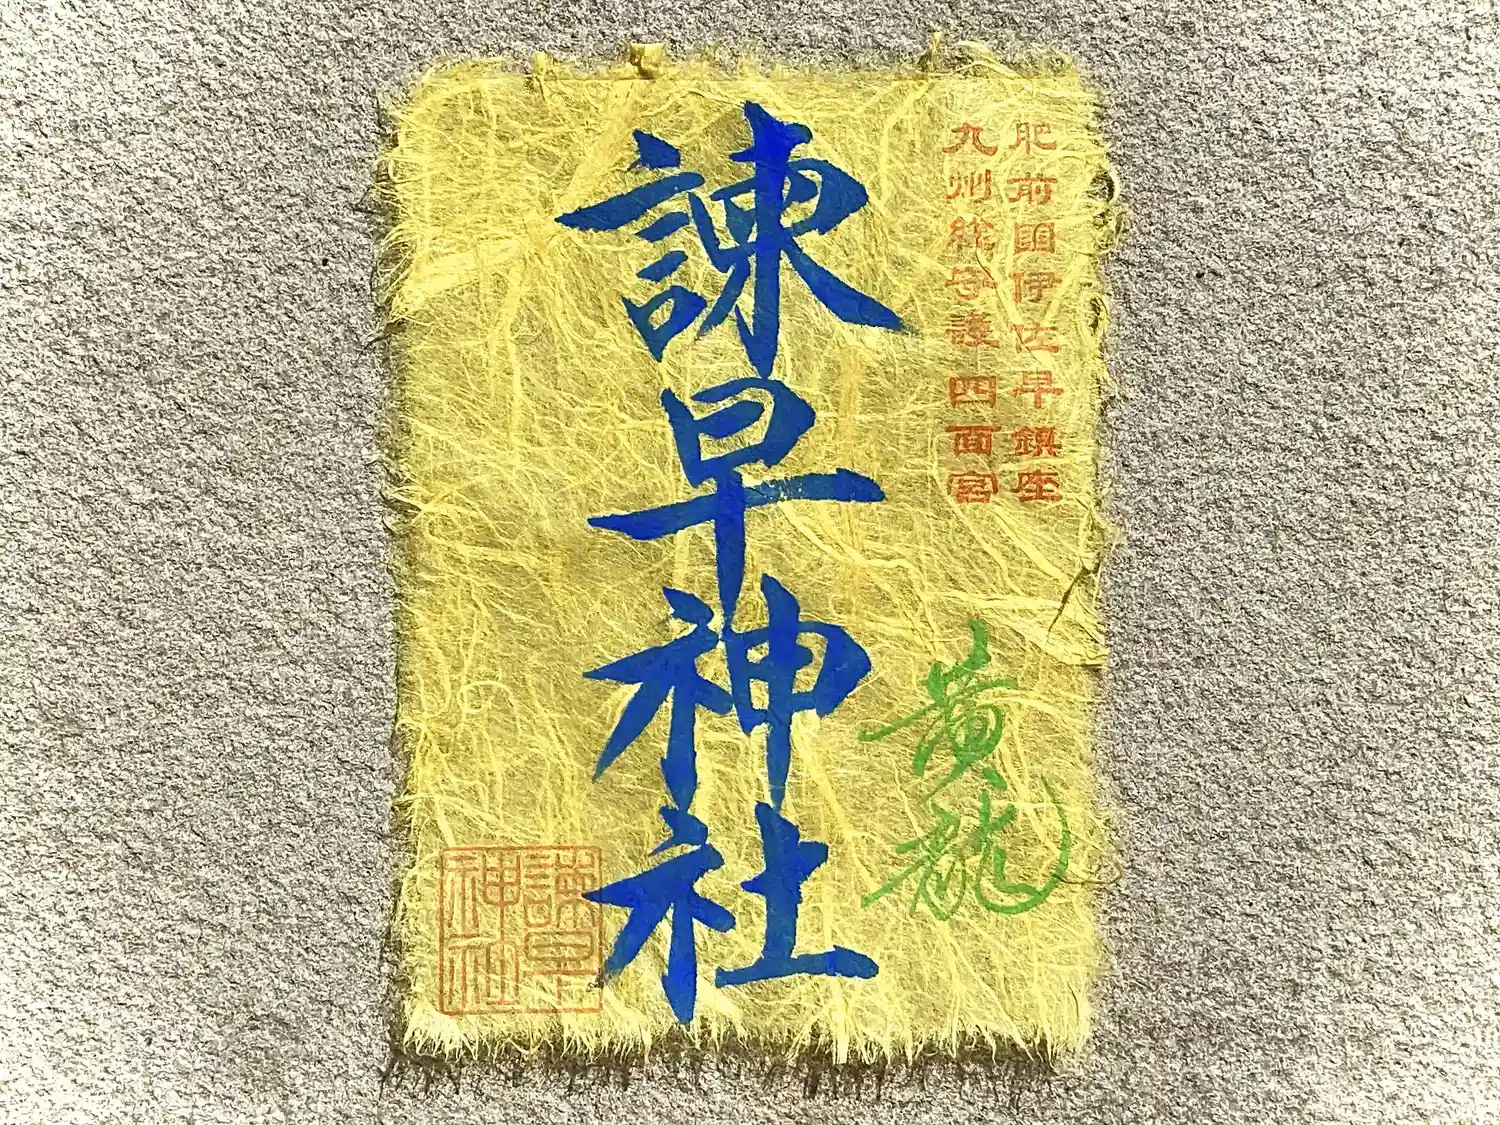 肥前国伊佐早鎮座
九州総守護四面宮
諫早神社
黄龍
諫早
神社